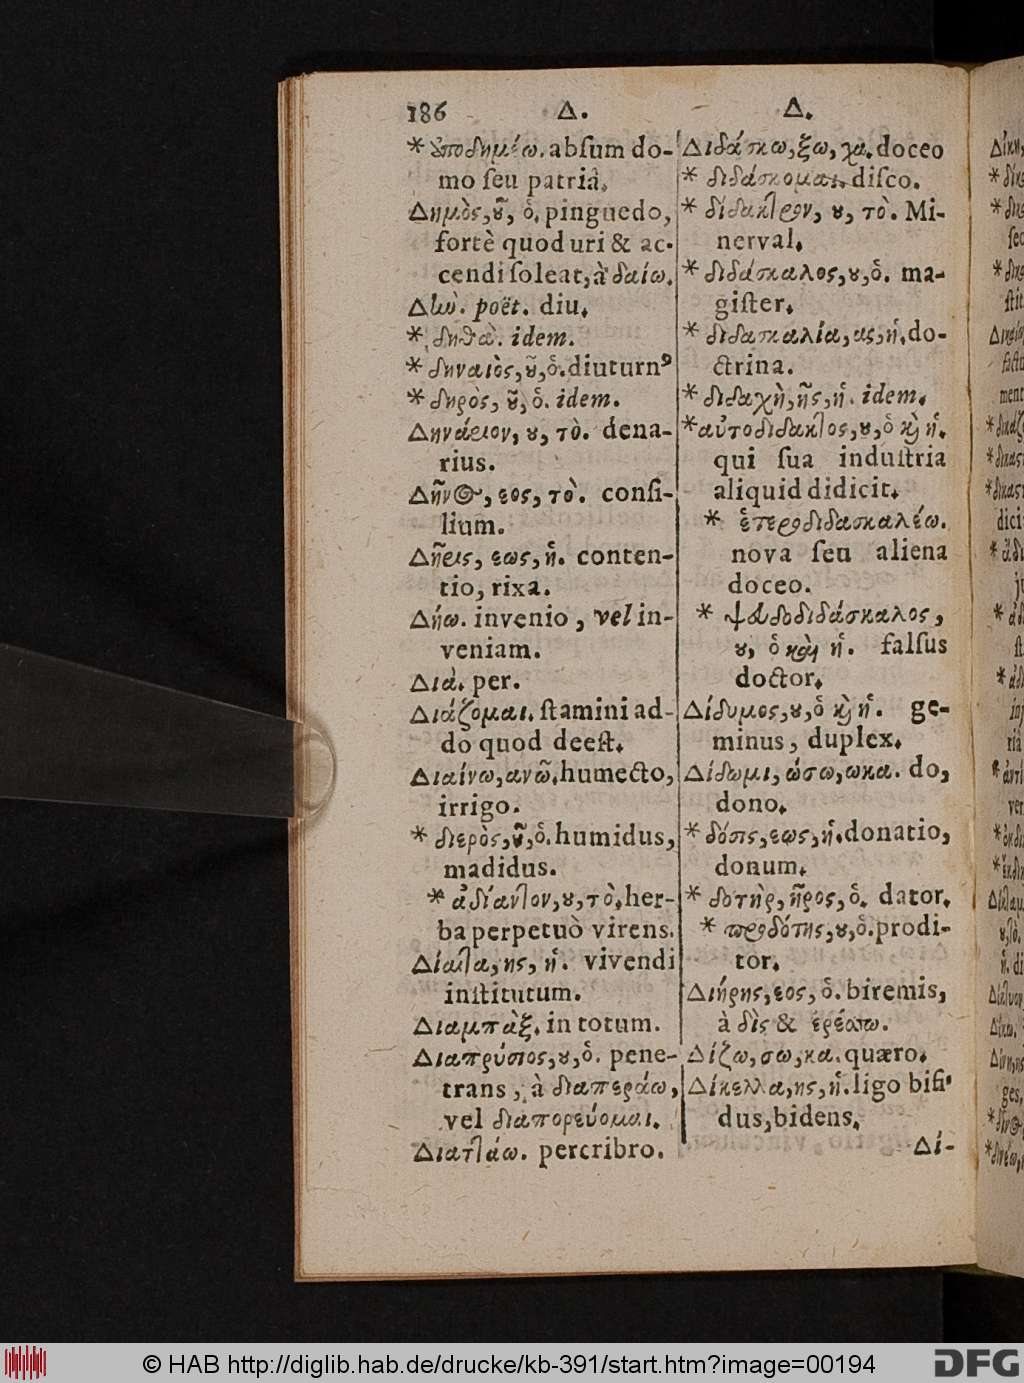 186 Δ. Δ.
* ἀποδημέω. absum do-
mo seu patriâ.
Δημὸς, ȣ͂, ὁ. pinguedo,
fortè quod uri & ac-
cendi soleat, à δαίω.
Δlὼ. poët. diu.
* δηθὰ. idem.
* δηναιὸς, ȣ͂, ὁ. diuturnꝰ
* δηρὸς, ȣ͂, ὁ. idem.
Δηνάριον, ȣ, τὸ. dena-
rius.
Δῆνος, εος, τὸ. consi-
lium.
Δῆρις, εως, ἡ. conten-
tio, rixa.
Δήω. invenio, vel in-
veniam.
Διὰ. per.
Διάζομαι. stamini ad-
do quod deest.
Διαίνω, ανῶ. humecto,
irrigo.
* διερὸς, ȣ͂, ὁ. humidus,
madidus.
* ἀδίαντον, ȣ, τὸ. her-
ba perpetuò virens.
Δίαιτα, ης, ἡ. vivendi
institutum.
Διαμπὰξ. in totum.
Διαπρύσιος, ȣ, ὁ. pene-
trans, à διαπεράω,
vel διαπορεύομαι.
Διατλάω. percribro.
Διδάσκω, ξω, χα. doceo
* διδάσκομαι. disco.
* δίδακτρον, ȣ, τὸ. Mi-
nerval.
* διδάσκαλος, ȣ, ὁ. ma-
gister.
* διδασκαλία, ας, ἡ. do-
ctrina.
* διδαχὴ, ῆς, ἡ. idem.
* αὐτοδίδακτος, ȣ, ὁ κ̀ ἡ.
qui sua industria
aliquid didicit.
* ἑτεροδιδασκαλέω.
nova seu aliena
doceo.
* ψευδοδιδάσκαλος,
ȣ, ὁ καὶ ἡ. falsus
doctor.
Δίδυμος, ȣ, ὁ κ̀ ἡ. ge-
minus, duplex.
Δίδωμι, ώσω, ωκα. do,
dono.
* δόσις, εως, ἡ. donatio,
donum.
* δοτὴρ, ῆρος, ὁ. dator.
* προδότης, ȣ, ὁ. prodi-
tor.
Διήρης, εος, ὁ. biremis,
à δὶς & ἐρέσσω.
Δίζω, σω, κα. quæro.
Δίκελλα, ης, ἡ. ligo bifi-
dus, bidens.
Δί-
© HAB http://diglib.hab.de/drucke/kb-391/start.htm?image=00194
DFG